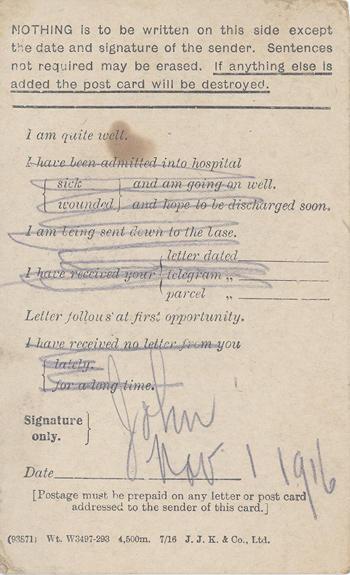 NOTHING is to be written on this side except
the date and signature of the sender. Sentences
not required may be erased. If anything else is
added the post card will be destroyed.
I am quite well.
I have been admitted into hospital
sick and am going on well.
wounded and hope to be discharged soon.
I am being sent down to the base.
letter dated
I have received your telegram „
parcel „
Letter follows at first opportunity.
I have received no letter from you
lately.
for a long time.
Signature only. John
Date Nov 1 1916
[Postage must be prepaid on any letter or post card
addressed to the sender of this card.]
(93871) Wt. W3497-293 4,500m. 7/16 J. J. K. & Co., Ltd.